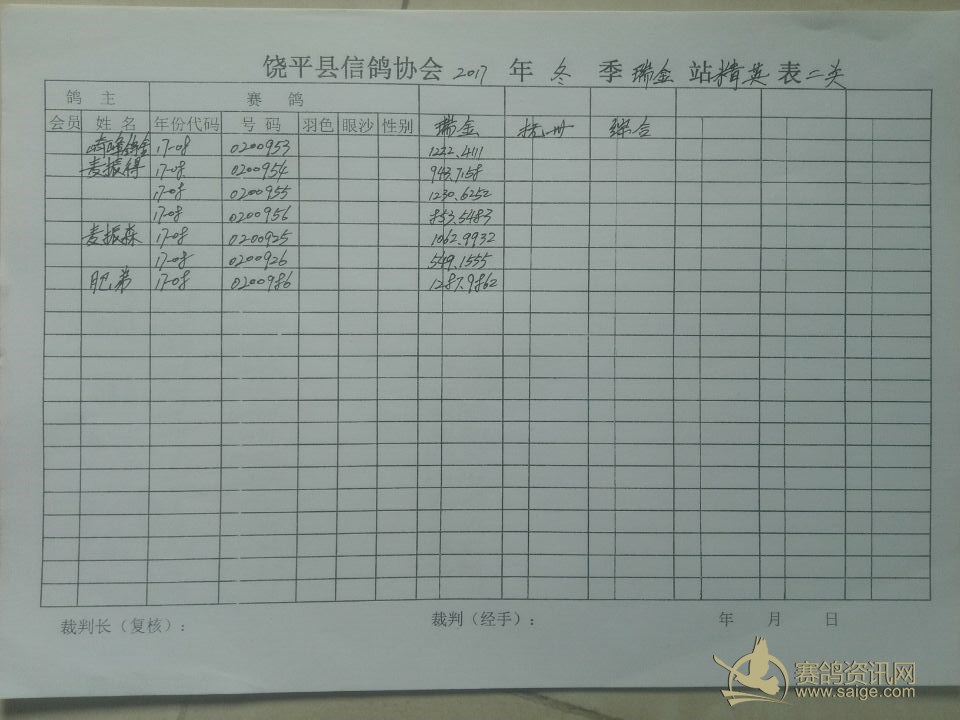 饶平县信鸽协会 2017 年 冬 季 瑞金 站 精英 表 二关
鸽 主 赛 鸽
会员 姓 名 年份代码 号 码 羽色 眼沙 性别 瑞金 抚州 综合
17-08 0200953 1222.4111
麦振得 17-08 0200954 948.7158
17-08 0200955 1230.6252
17-08 0200956 853.5483
麦振森 17-08 0200925 1062.9932
17-08 0200926 549.1555
肥弟 17-08 0200986 1287.9862
裁判长（复核）： 裁判（经手）： 年 月 日
赛鸽资讯网
www.saige.com